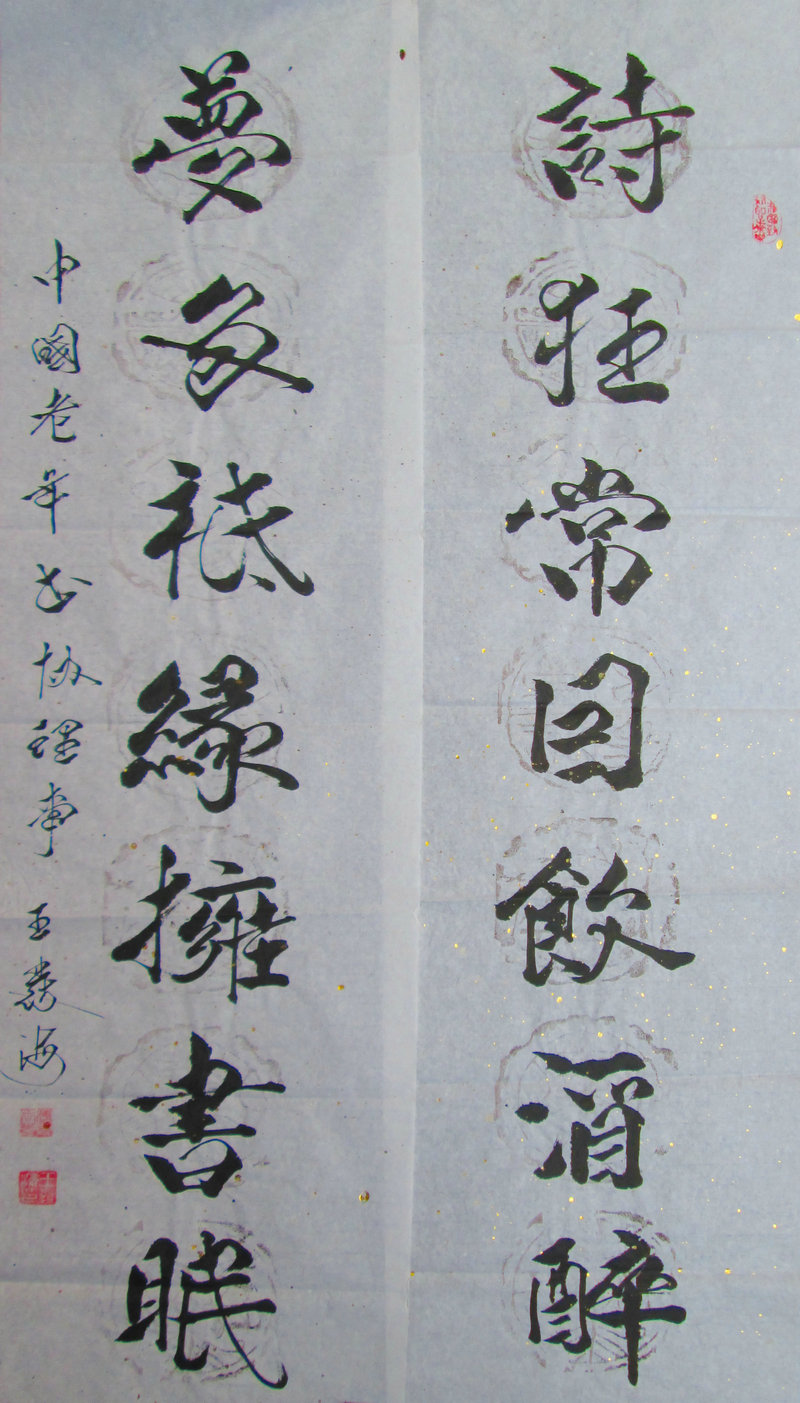 詩狂常因飲酒醉
夢多祗緣擁書眠
中國老年书协理事 王海